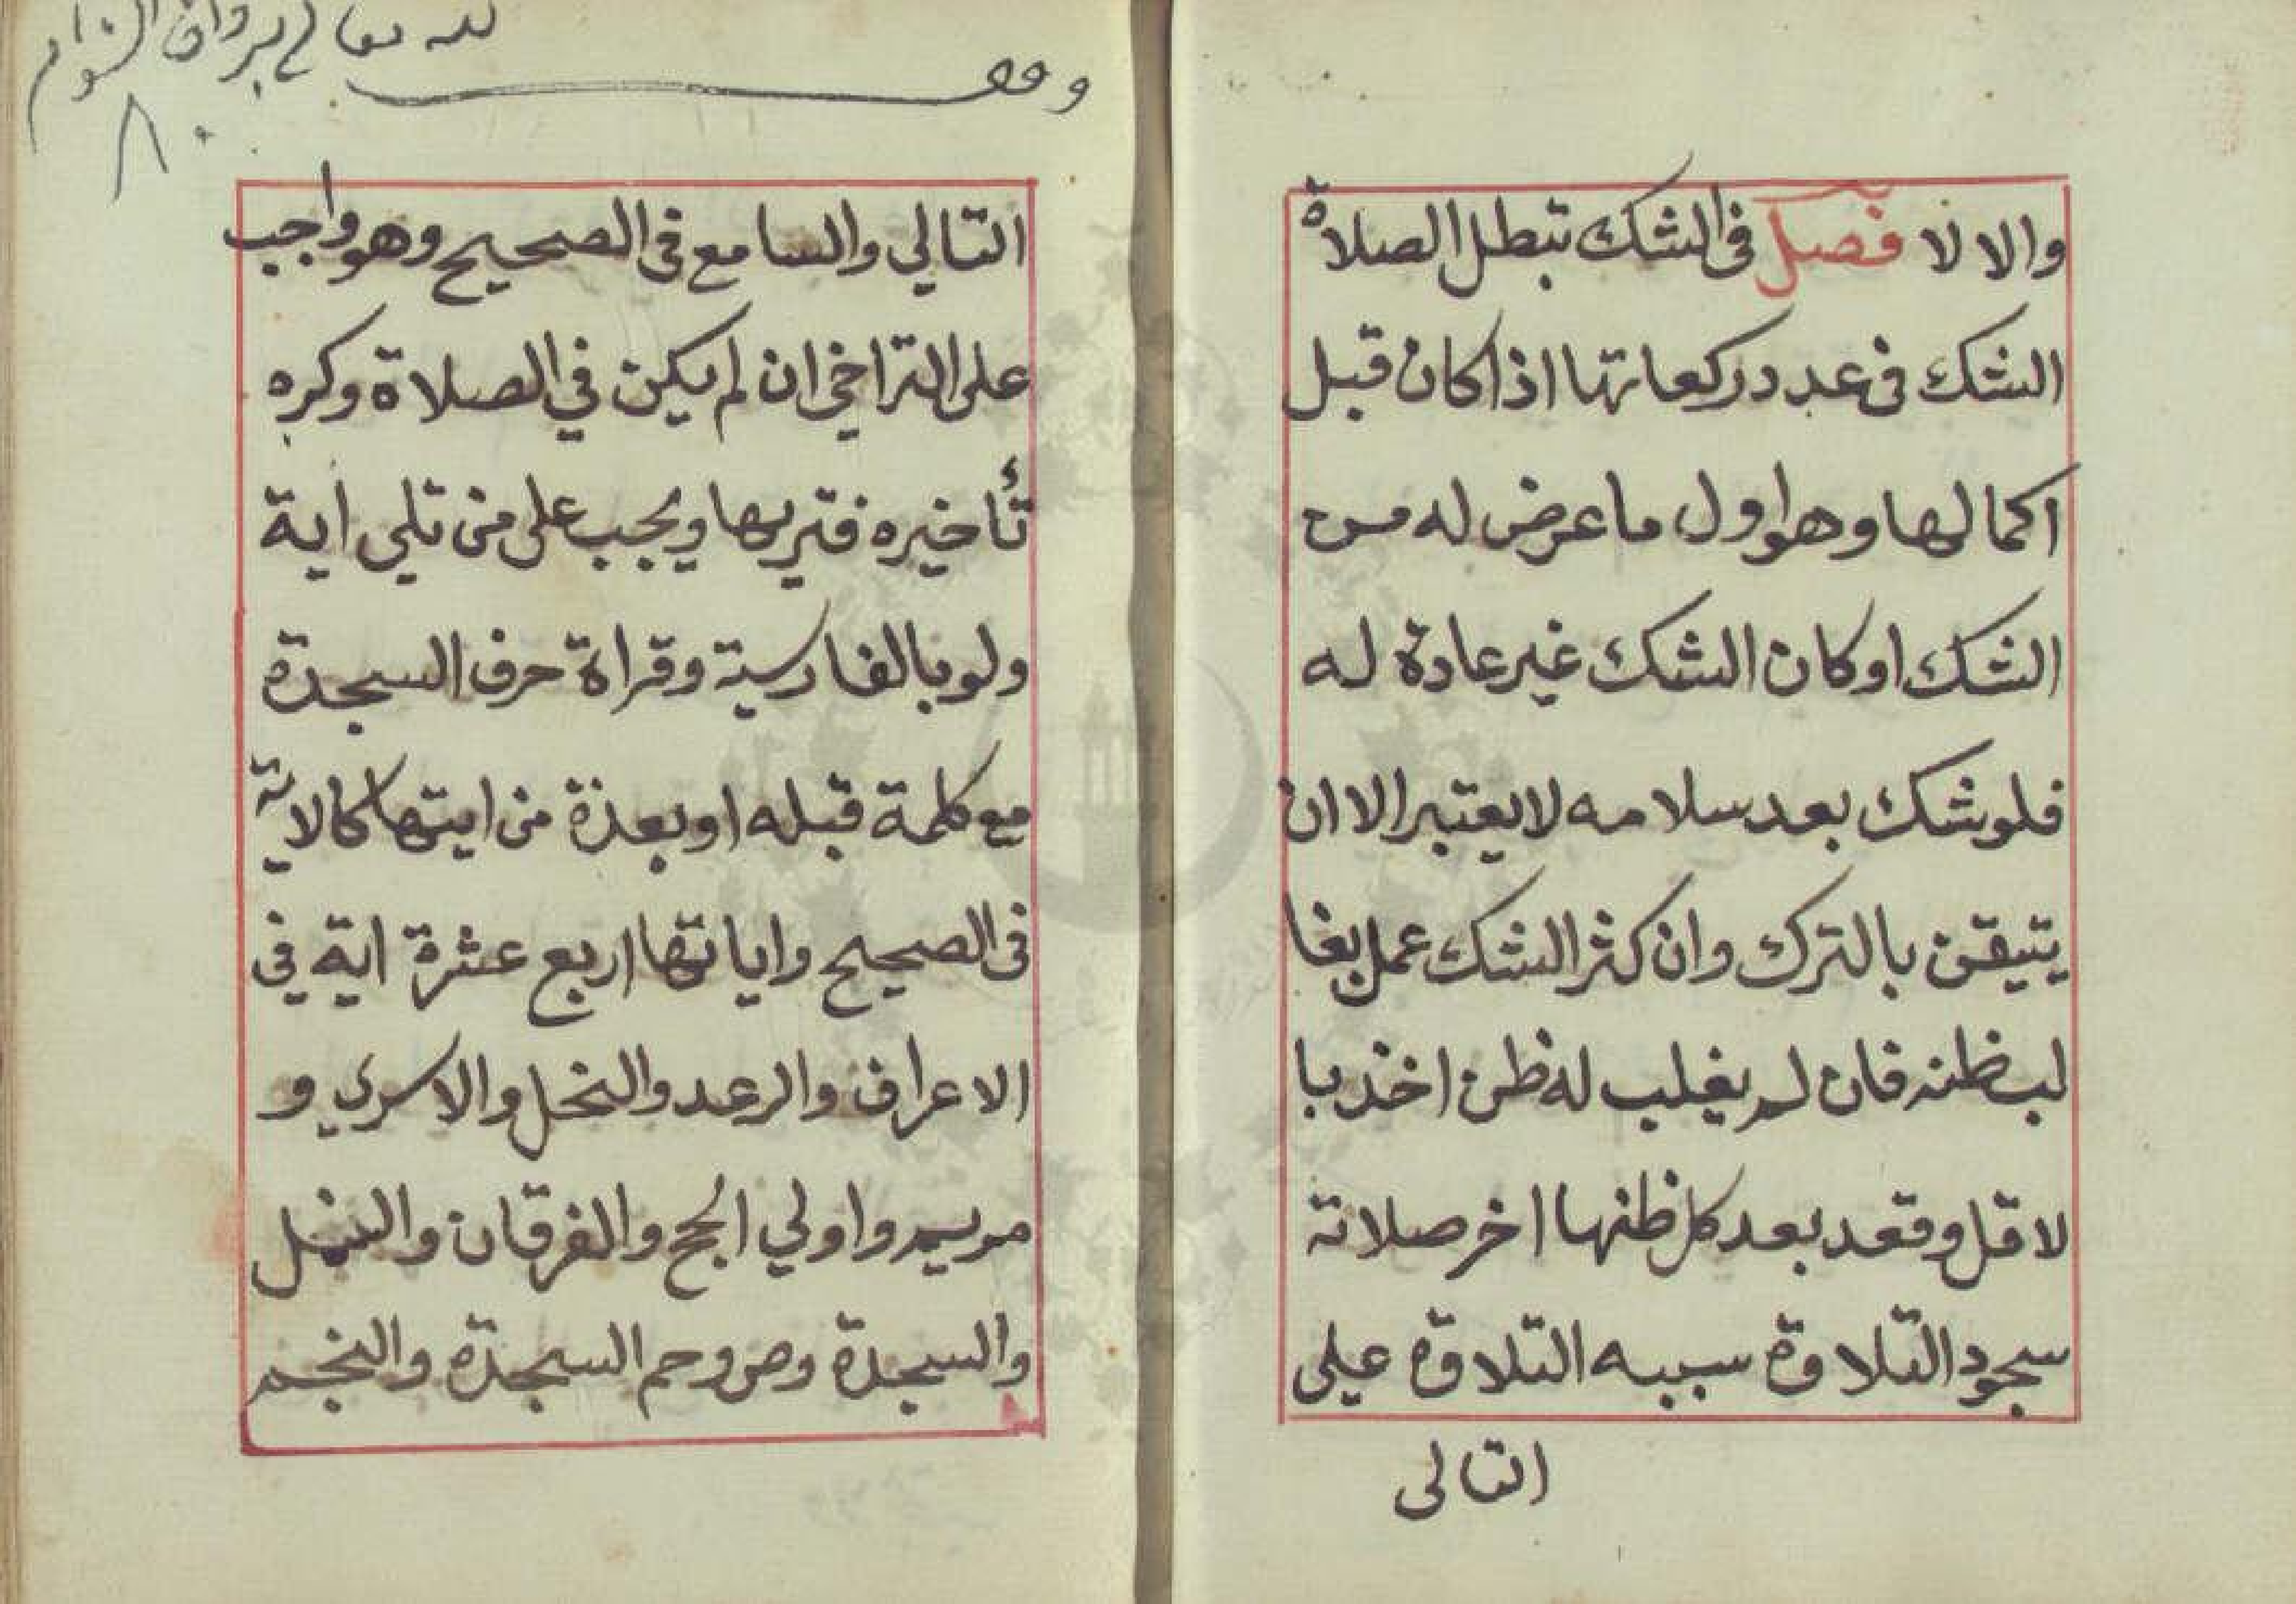 والا لا فصل فى الشك تبطل الصلاة
الشك فى عدد ركعاتها اذا كان قبل
اكمالها وهو اول ما عرض له من
الشك او كان الشك غير عادة له
فلو شك بعد سلامه لا يعتبر الا ان
يتيقن بالترك وان كثر الشك عمل بغا
لب ظنه فان لم يغلب له ظن اخذ با
لاقل وقعد بعد كل ظنها اخر صلاته
سجود التلاوة سببه التلاوة على
التالى
وقف لله تعالى برواق الشوام
٨٠
التالي والسامع فى الصحيح وهو واجب
على التراخي ان لم يكن في الصلاة وكره
تأخيره فتريها ويجب على من تلي اية
ولو بالفارسية وقراة حرف السجدة
مع كلمة قبله او بعدة من ايتها كالاية
فى الصحيح واياتها اربع عشرة اية في
الاعراف والرعد والنحل والاسرى و
مريم واولي الحج والفرقان والنمل
والسجدة وص وحم السجدة والنجم